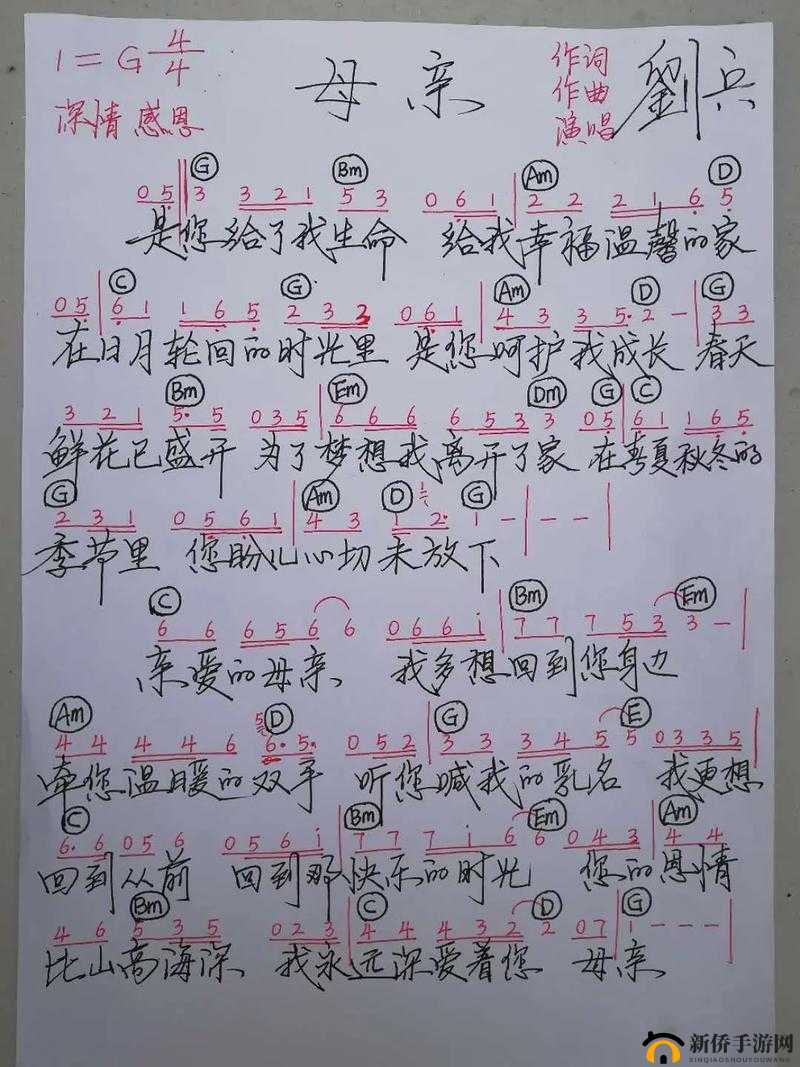 1=G 4/4
母亲
作词
作曲
演唱
劉兵
深情感恩
G Bm Am D
05 | 3 321 53 061 | 22 2165
是您给了我生命 给我幸福温馨的家
C G Am D G
05 | 61 165 233 061 | 43 35· 2 - | 33
在日月轮回的时光里 是您呵护我成长 春天
Bm Em Dm G C
321 5·5 035 | 666 6533 05 | 61 165
鲜花已盛开 为了梦想我离开了家 在春夏秋冬的
G Am D G
231 0561 | 43 12· 1 - | - - |
季节里 您盼儿心切未放下
C Bm Em
66 656 6 0661 | 77 753 3 - |
亲爱的母亲 我多想回到您身边
Am D G E
44 446 6·5· 052 | 33 345 5 0335 |
牵您温暖的双手 听您喊我的乳名 我更想
C Bm Em Am
6·6 056 0561 | 77 716 6 043 | 44
回到从前 回到那快乐的时光 您的恩情
Bm C D G
46 535 023 | 44 432 2 07 | 1 - - - |
比山高海深 我永远深爱着您 母亲
新侨手游网
XINQIAOSHOUYOUWANG